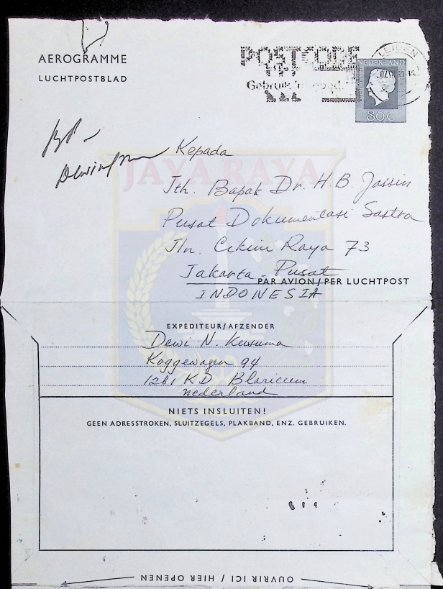 AEROGRAMME
LUCHTPOSTBLAD
POSTCODE
LEIDEN
80c
Kepada
JAYA RAYA
Yth. Bapak Dr. H.B Jassin
Pusat Dokumentasi Sastra
Jln. Cikini Raya 73
Jakarta Pusat
PAR AVION/PER LUCHTPOST
INDONESIA
EXPEDITEUR/AFZENDER
Dewi N. Kusuma
Koggewagen 94
1261 KD Blaricum
Nederland
NIETS INSLUITEN!
GEEN ADRESSTROKEN, SLUITZEGELS, PLAKBAND, ENZ. GEBRUIKEN.
OUVRIR ICI / HIER OPENEN